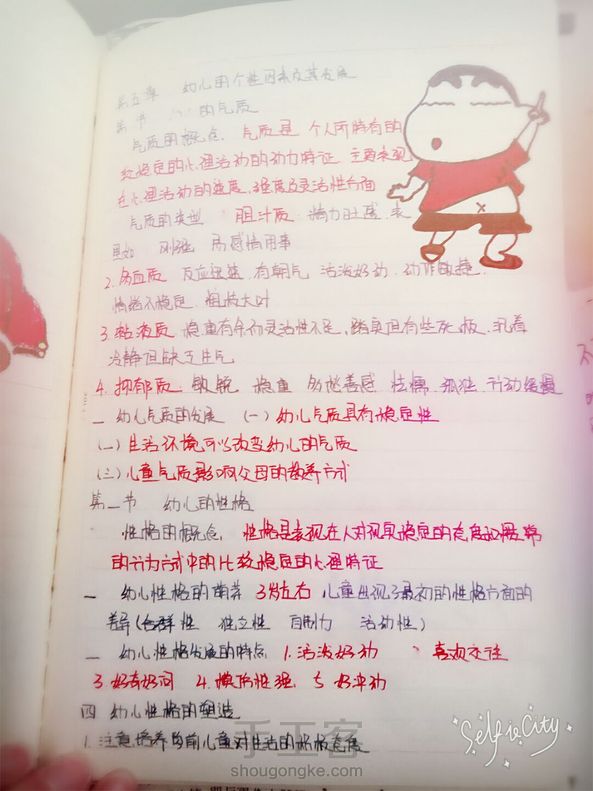 第五章 幼儿的个性因素及其发展
第 节 的气质
气质的概念. 气质是 个人所特有的
较稳定的心理活动的动力特征 主要表现
在心理活动的速度,强度及灵活性方面
气质的类型 胆汁质 精力旺盛 表
里如 刚强 易感情用事
2.多血质 反应迅速 有朝气 活泼好动 动作敏捷.
情绪不稳定 粗枝大叶
3.粘液质 稳重有余而灵活性不足,踏实但有些死板.沉着
冷静但缺乏生气
4.抑郁质 敏锐 稳重 多愁善感 怯懦 孤独 行动缓慢
一 幼儿气质的发展 (一)幼儿气质具有稳定性
(一)生活环境可以改变幼儿的气质
(三)儿童气质影响父母的教养方式
第二节 幼儿的性格
性格的概念. 性格是表现在人对现实稳定的态度和惯常
的行为方式中的比较稳定的心理特征
一 幼儿性格的萌芽 3岁左右 儿童出现了最初的性格方面的
差异(合群性 独立性 自制力 活动性)
一 幼儿性格发展的特点 1.活泼好动 喜欢交往
3.好奇好问 4.模仿性强 5 好冲动
四 幼儿性格的塑造
1.注意培养 前儿童对生活的积极态度
手工客
shougongke.com
Selfie City